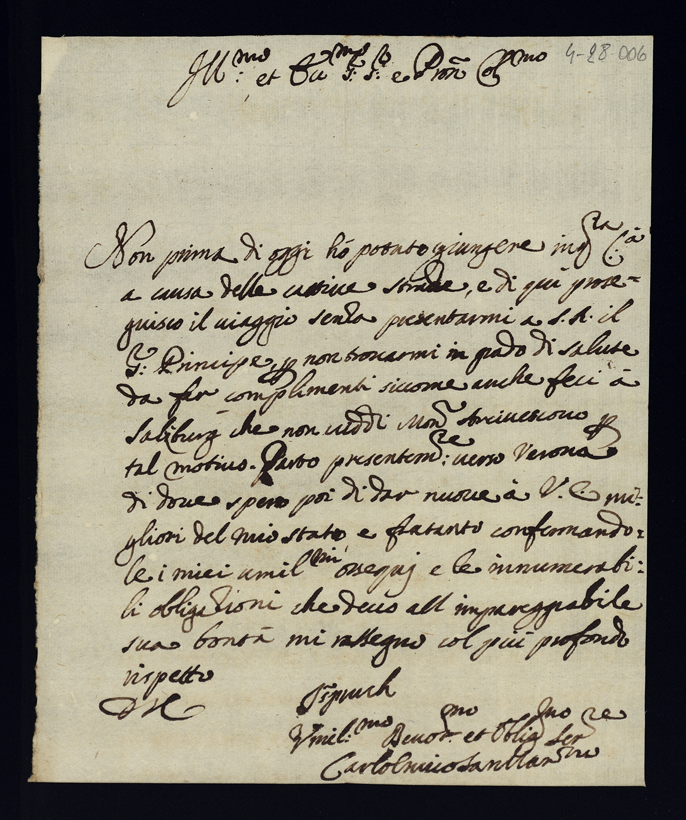 Ill:mo et Ecc:mo S:r S:r e Pron Col:mo
4-28-006
Non prima di oggi hò potuto giungere in q:sta Cà
a causa delle cattive strade, e di quì prose=
guisco il viaggio senza presentarmi a S. A. il
S:r Principe, p non trovarmi in grado di salute
da far complimenti siccome anche feci à
Salzburg che non viddi Mon:r Arcivescovo p
tal motivo. Parto presentem:te verso Verona
di dove spero poi di dar nuove à V. E. mi=
gliori del mio stato e fratanto confermando=
le i miei umil:mi ossequj e le innumerabi=
li obligazioni che devo all impareggiabile
sua bontà mi rassegno col più profondo
rispetto
D V E
Ispruch
Vmil:mo Devot:mo et Oblig:mo Ser:re
Carlo